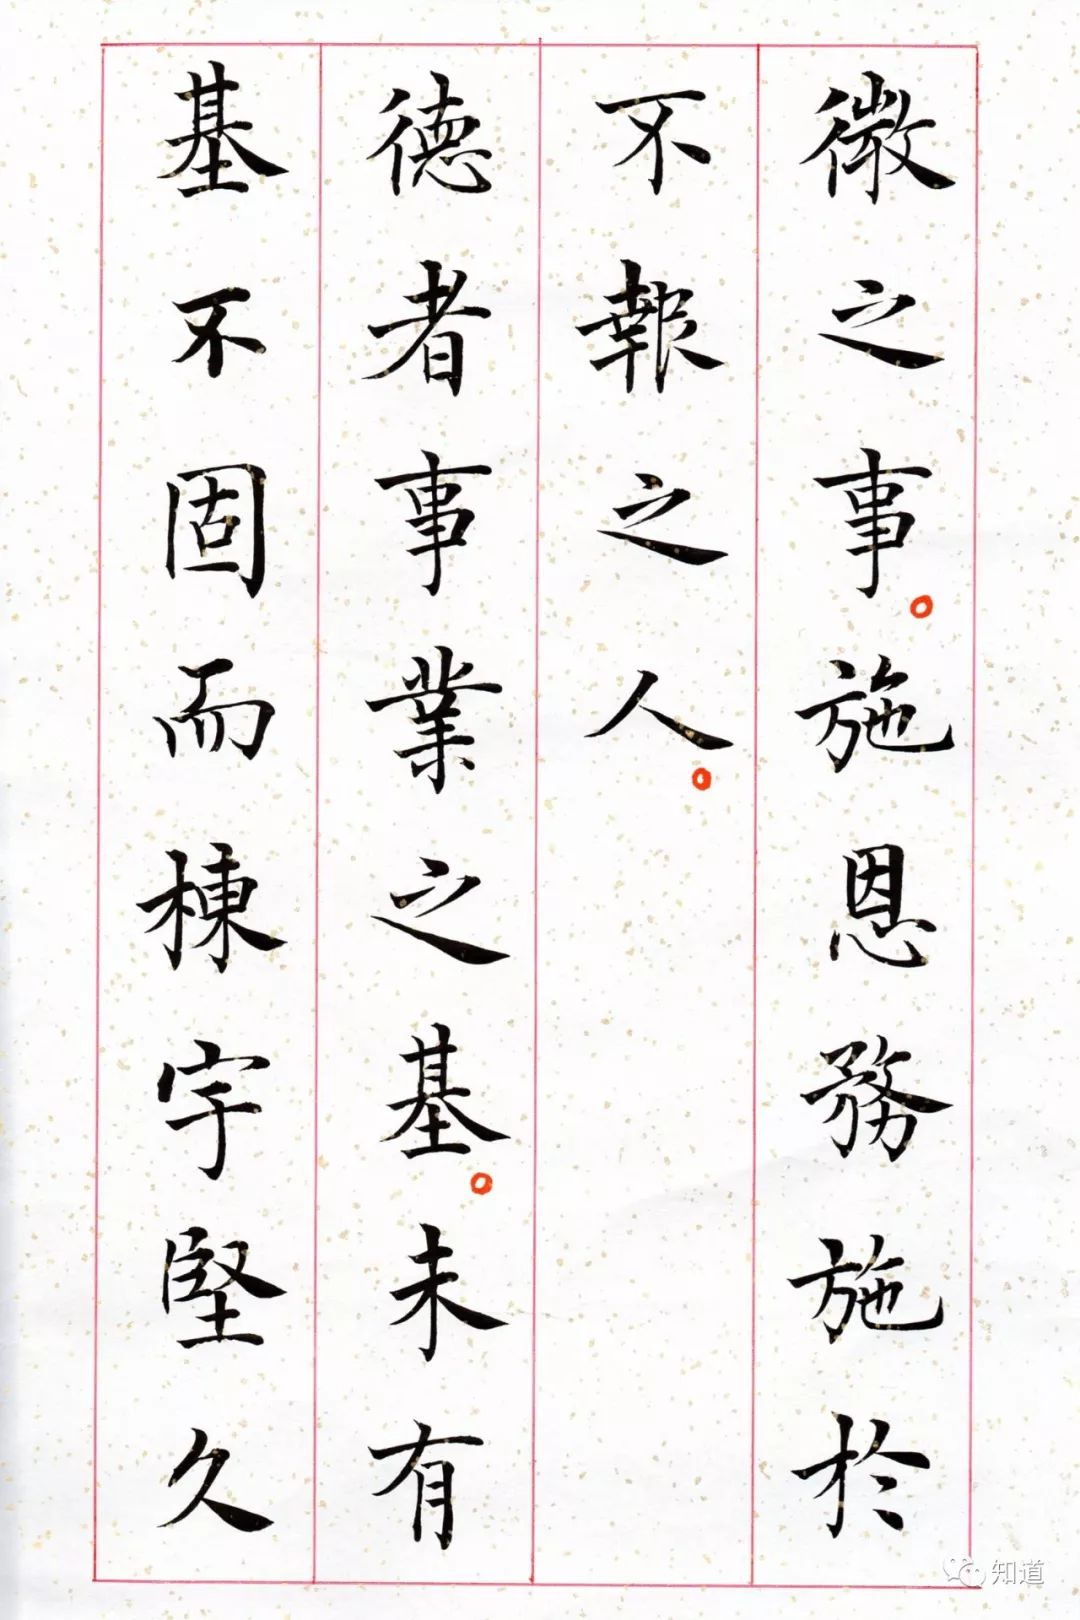 微之事。施恩務施於
不報之人。
德者事業之基。未有
基不固而棟宇堅久
知道